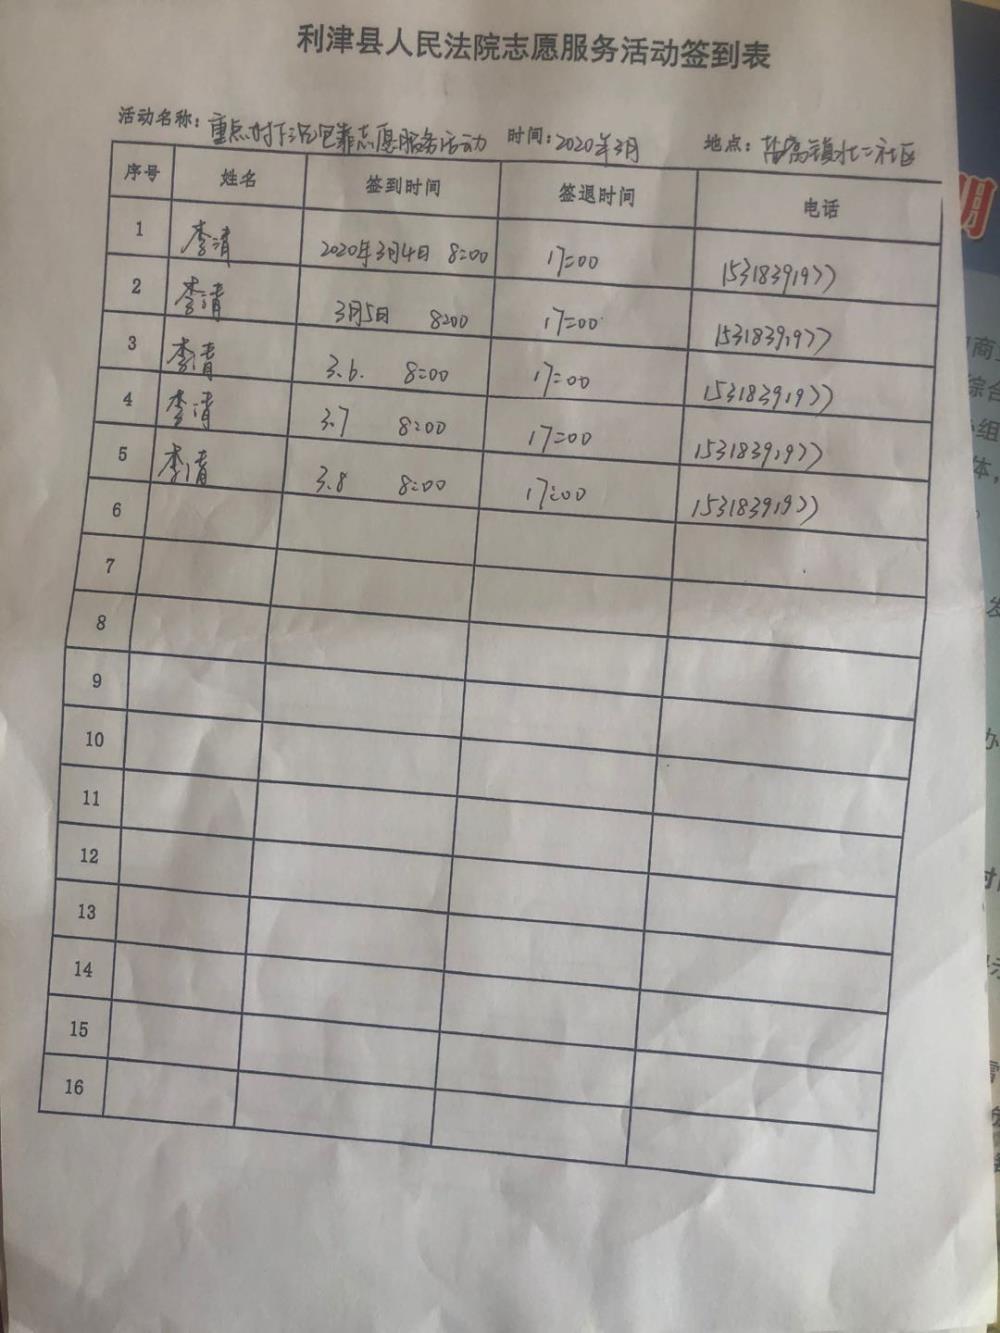 利津县人民法院志愿服务活动签到表
活动名称：重点村下沉包靠志愿服务活动 时间：2020年3月 地点：盐窝镇北二社区
序号 姓名 签到时间 签退时间 电话
1 李清 2020年3月4日 8:00 17:00 15318391977
2 李清 3月5日 8:00 17:00 15318391977
3 李清 3.6. 8:00 17:00 15318391977
4 李清 3.7 8:00 17:00 15318391977
5 李清 3.8 8:00 17:00 15318391977
6
7
8
9
10
11
12
13
14
15
16
明
商
综合
组
体，
办